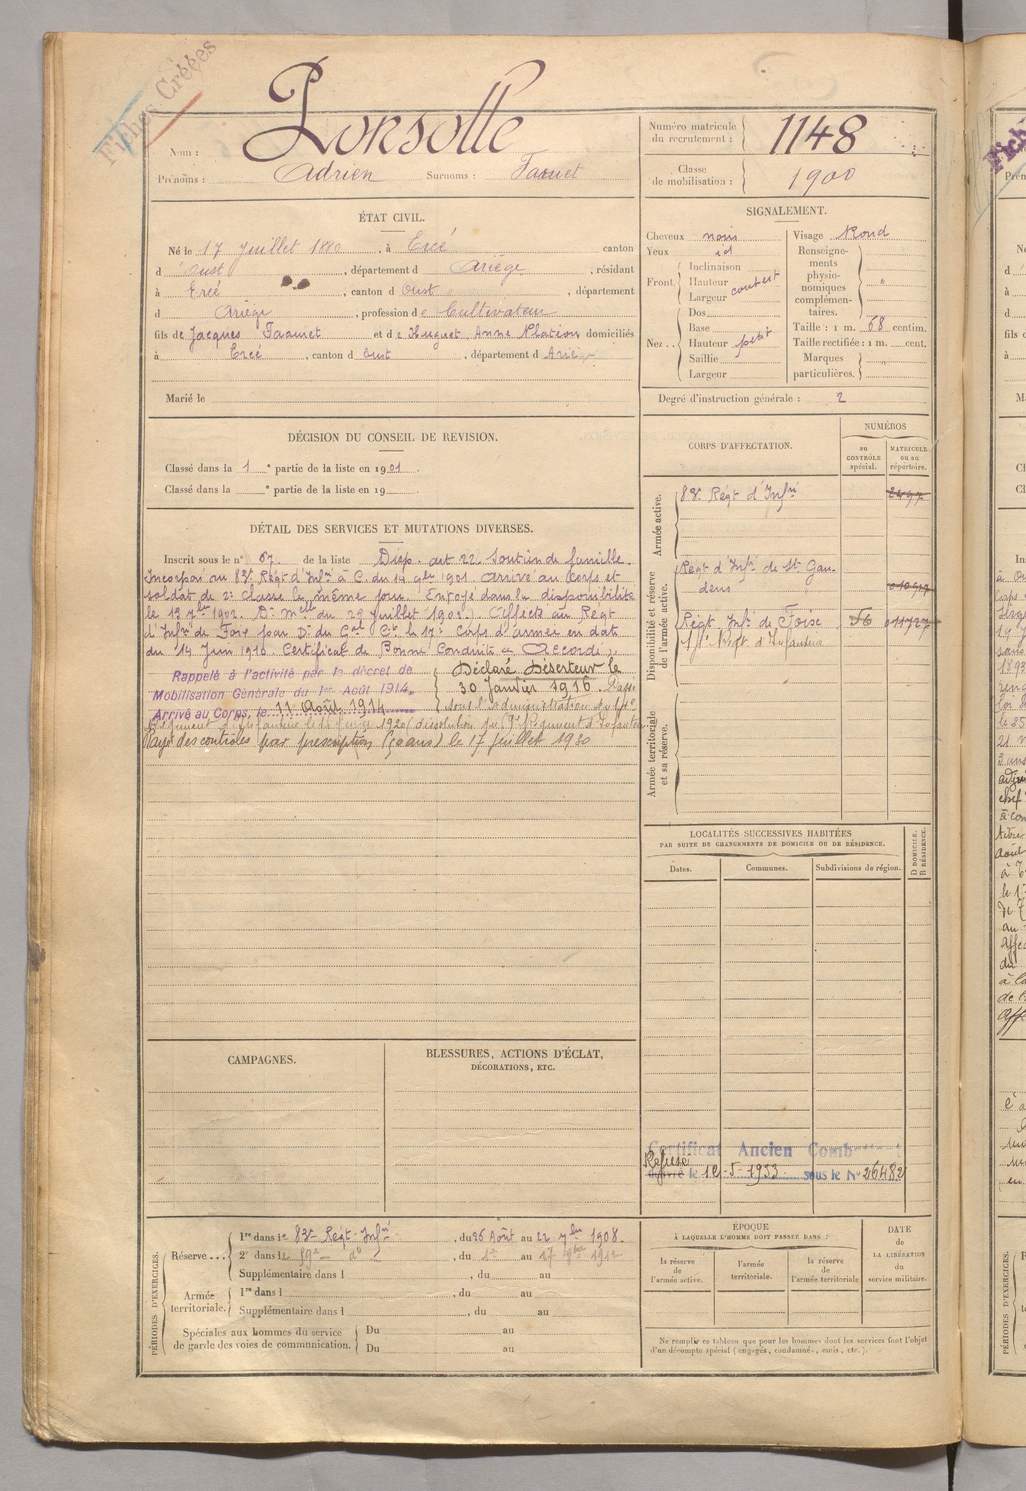 Fiches Créées
Nom : Ponsolle
Prénoms : Adrien Surnoms : Faouet
Numéro matricule du recrutement : 1148
Classe de mobilisation : 1900
ÉTAT CIVIL.
Né le 17 Juillet 1880, à Ercé canton
d'Oust, département d Ariège, résidant
à Ercé, canton d'Oust, département
d Ariège, profession de Cultivateur
fils de Jacques Faouet et de Huguet Anne domiciliés
à Ercé, canton d Oust, département d Ariège
Marié le
SIGNALEMENT.
Cheveux noirs
Yeux id
Front. Inclinaison
Hauteur couvert
Largeur
Nez.. Dos
Base
Hauteur petit
Saillie
Largeur
Visage Rond
Renseignements physionomiques complémentaires. "
Taille : 1 m. 68 centim.
Taille rectifiée : 1 m. cent.
Marques particulières.
Degré d'instruction générale : 2
DÉCISION DU CONSEIL DE REVISION.
Classé dans la 1e partie de la liste en 1901.
Classé dans la e partie de la liste en 19
DÉTAIL DES SERVICES ET MUTATIONS DIVERSES.
Inscrit sous le n° 67 de la liste Disp. art 22. Soutien de famille.
Incorporé au 83e Régt d'Infie à C. du 14 9bre 1901. Arrivé au Corps et
soldat de 2e Classe le même jour. Envoyé dans la disponibilité
le 19 7bre 1902. Affecté au Régt
d'Infie de Foix par Don du Gal Ct le 17e Corps d'armée en date
du 14 Juin 1910. Certificat de Bonne Conduite "Accordé".
Rappelé à l'activité par le décret de
Mobilisation Générale du 1er Août 1914.
Arrivé au Corps, le 11 Août 1914
Déclaré Déserteur le
30 Janvier 1916. Passé
sous l'administration du
Régiment d'Infanterie 1920 (dissolution du Régiment d'Infanterie
Rayé des contrôles par prescription (50 ans) le 17 juillet 1930
CORPS D'AFFECTATION.
NUMÉROS
au CONTRÔLE spécial.
MATRICULE ou au répertoire.
Armée active.
83e Régt d'Infie 2497
Disponibilité et réserve de l'armée active.
Régt d'Infie de St Gau-
dens
Régt Infie de Foix 56 011727
Régt d'Infanterie
Armée territoriale et sa réserve.
LOCALITÉS SUCCESSIVES HABITÉES
PAR SUITE DE CHANGEMENTS DE DOMICILE OU DE RÉSIDENCE.
Dates. Communes. Subdivisions de région. D DOMICILE. R RÉSIDENCE.
CAMPAGNES.
BLESSURES, ACTIONS D'ÉCLAT,
DÉCORATIONS, ETC.
Certificat Ancien Combattant
Refusé
délivré le 12-5-1933 sous le N° 26482
PÉRIODES D'EXERCICES.
Réserve... 1re dans le 83e Régt Infie, du 26 Août au 22 7bre 1908.
2e dans le 59e do, du 1er au 17 9bre 1912
Supplémentaire dans l , du au
Armée territoriale. 1re dans l , du au
Supplémentaire dans l , du au
Spéciales aux hommes du service de garde des voies de communication. Du au
Du au
ÉPOQUE
À LAQUELLE L'HOMME DOIT PASSER DANS :
la réserve de l'armée active.
l'armée territoriale.
la réserve de l'armée territoriale
DATE de LA LIBÉRATION du service militaire.
Ne remplir ce tableau que pour les hommes dont les services font l'objet
d'un décompte spécial (engagés, condamnés, omis, etc.).